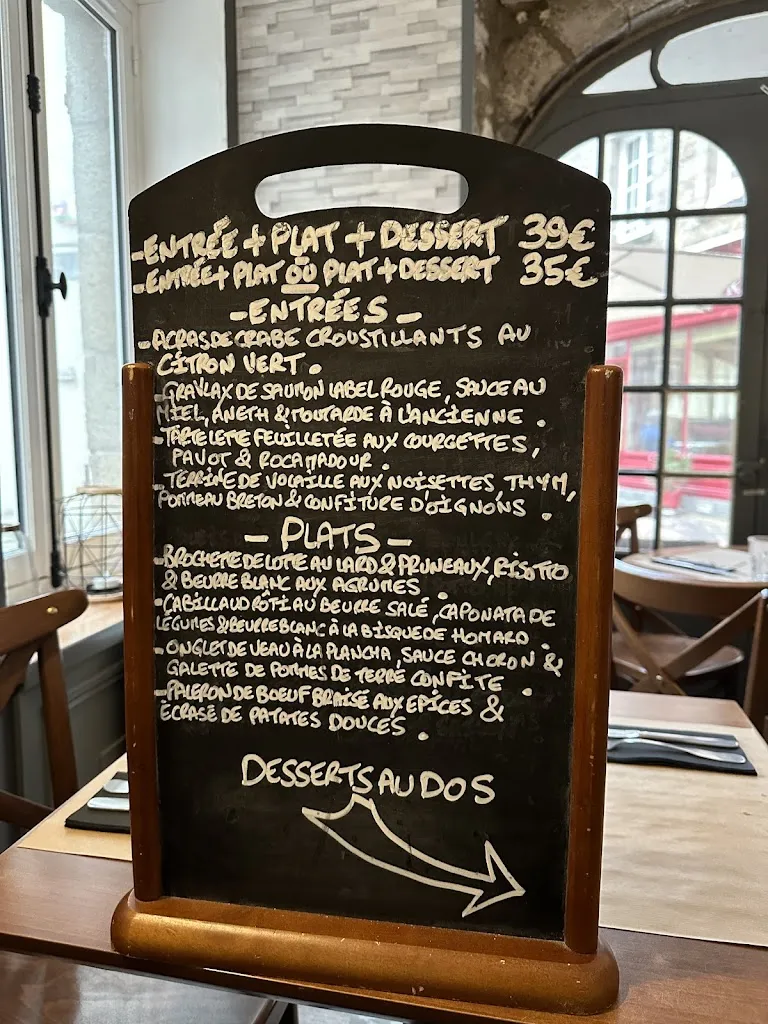 -ENTRÉE + PLAT + DESSERT 39€
-ENTRÉE + PLAT OÙ PLAT + DESSERT 35€
- ENTRÉES -
-ACRAS DE CRABE CROUSTILLANTS AU
CITRON VERT.
-GRAVLAX DE SAUMON LABEL ROUGE, SAUCE AU
MIEL, ANETH & MOUTARDE À L'ANCIENNE.
-TARTELETTE FEUILLETÉE AUX COURGETTES,
PAVOT & ROCAMADOUR.
-TERRINE DE VOLAILLE AUX NOISETTES, THYM,
POMMEAU BRETON & CONFITURE D'OIGNONS.
- PLATS -
-BROCHETTE DE LOTTE AU LARD & PRUNEAUX, RISOTTO
& BEURRE BLANC AUX AGRUMES.
-CABILLAUD RÔTI AU BEURRE SALÉ, CAPONATA DE
LÉGUMES & BEURRE BLANC À LA BISQUE DE HOMARD.
-ONGLET DE VEAU À LA PLANCHA, SAUCE CHORON &
GALETTE DE POMMES DE TERRE CONFITE.
-PALERON DE BOEUF BRAISÉ AUX EPICES &
ÉCRASÉ DE PATATES DOUCES.
DESSERTS AU DOS